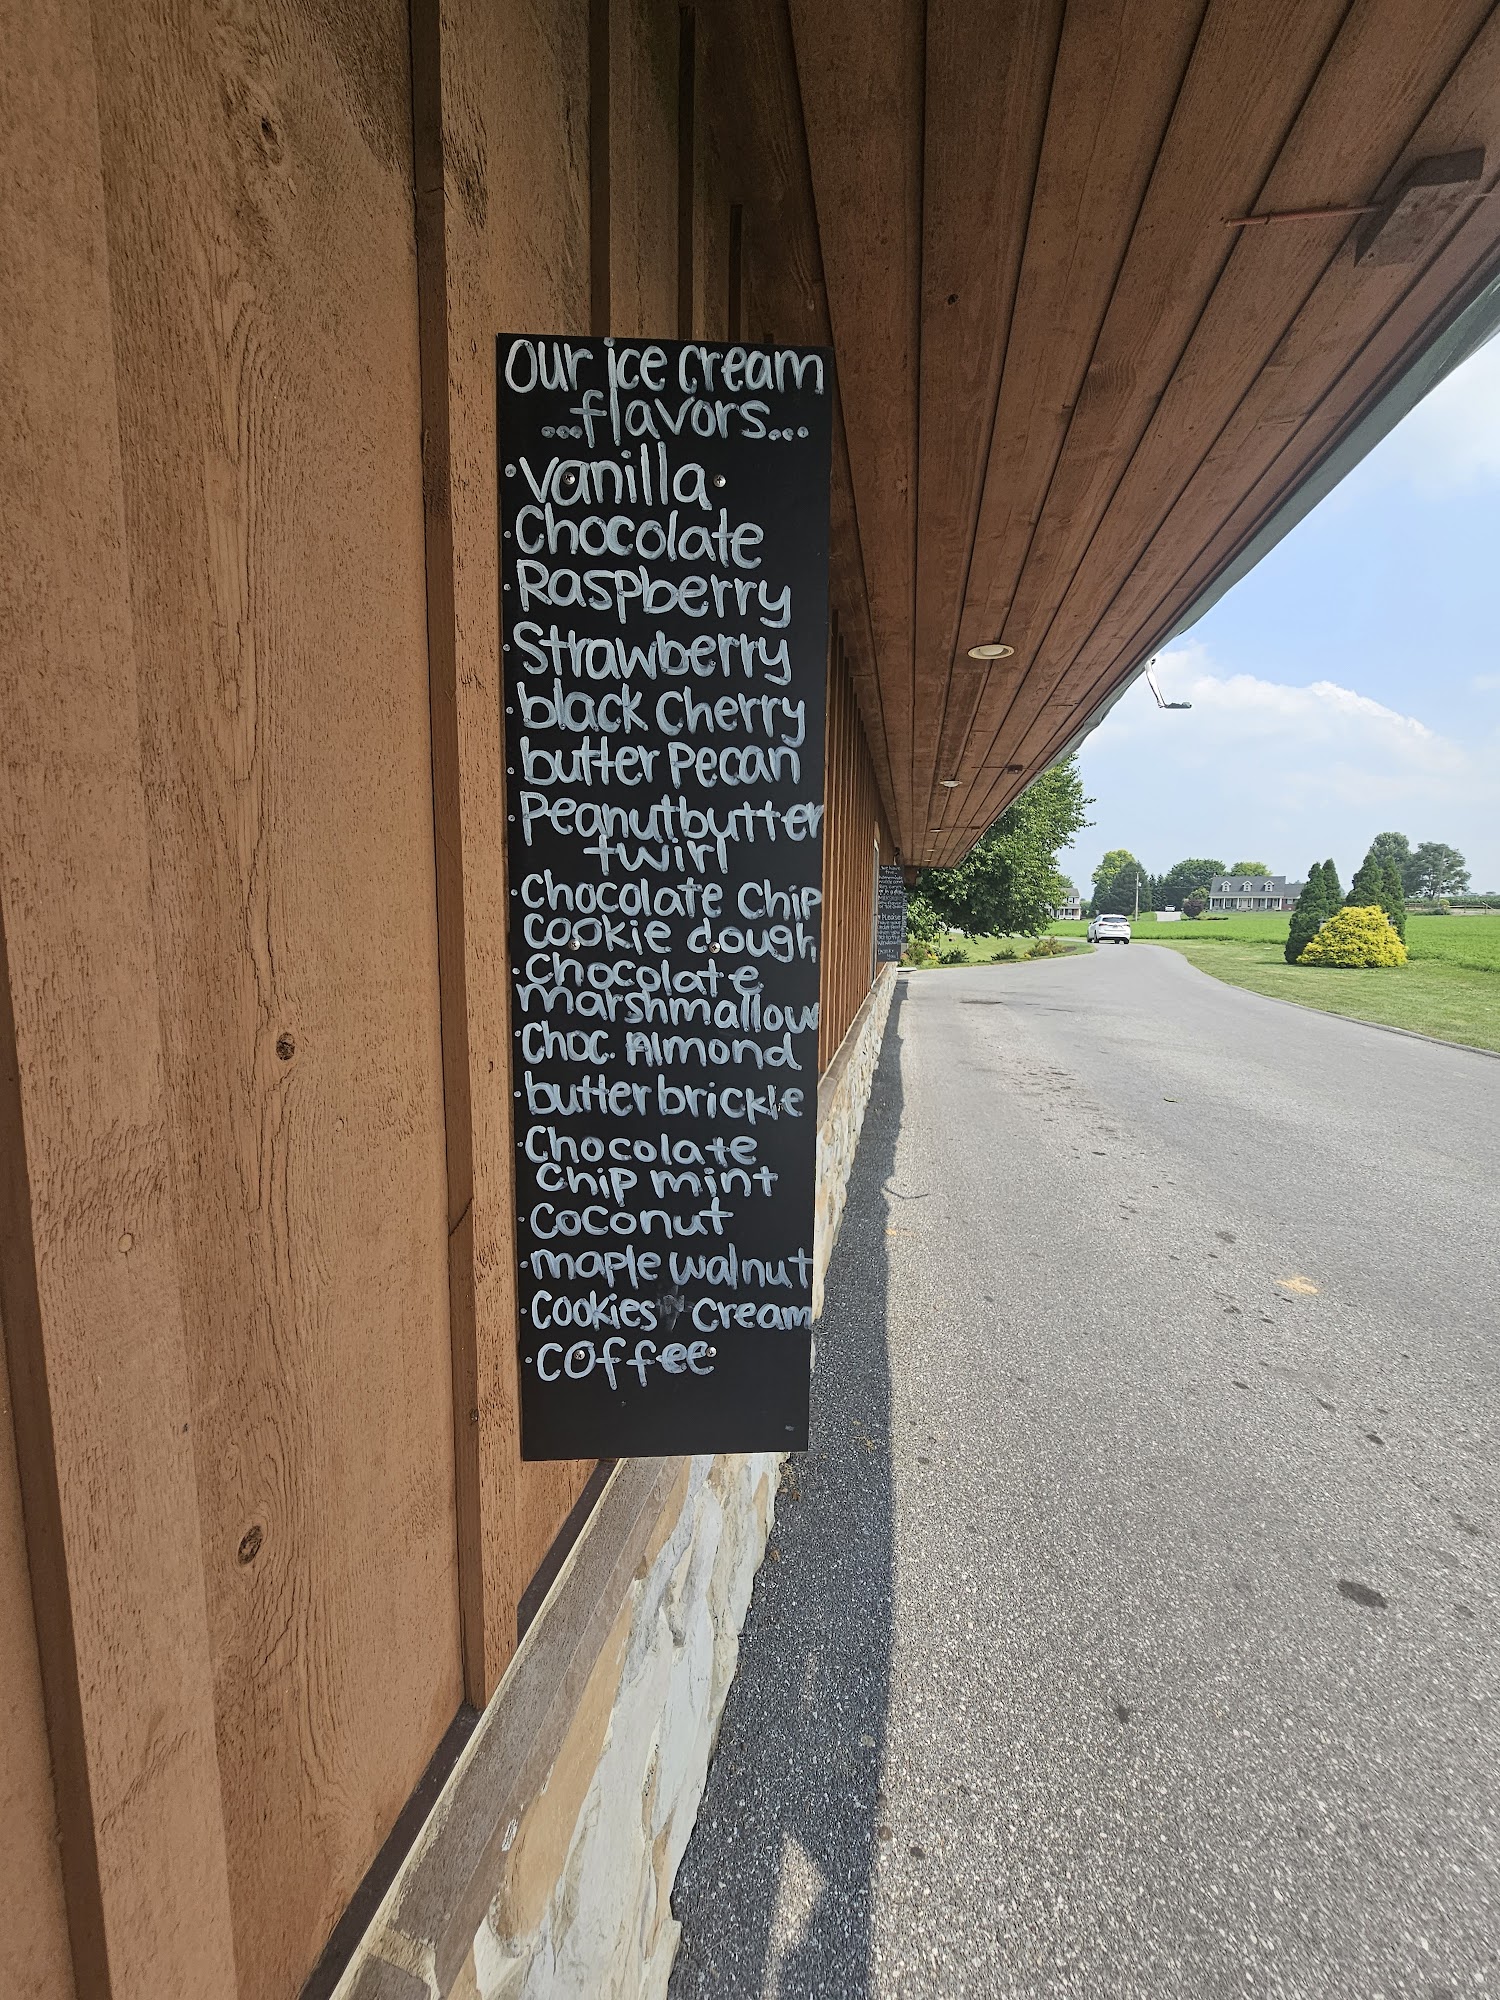 Our ice cream
...flavors...
·vanilla·
·Chocolate
·Raspberry
·Strawberry
·black Cherry
·butter Pecan
·Peanutbutter
twirl
·Chocolate Chip
Cookie dough
·Chocolate
marshmallow
·Choc. Almond
·butter brickle
·Chocolate
Chip mint
·Coconut
·maple walnut
·Cookies N Cream
·coffee